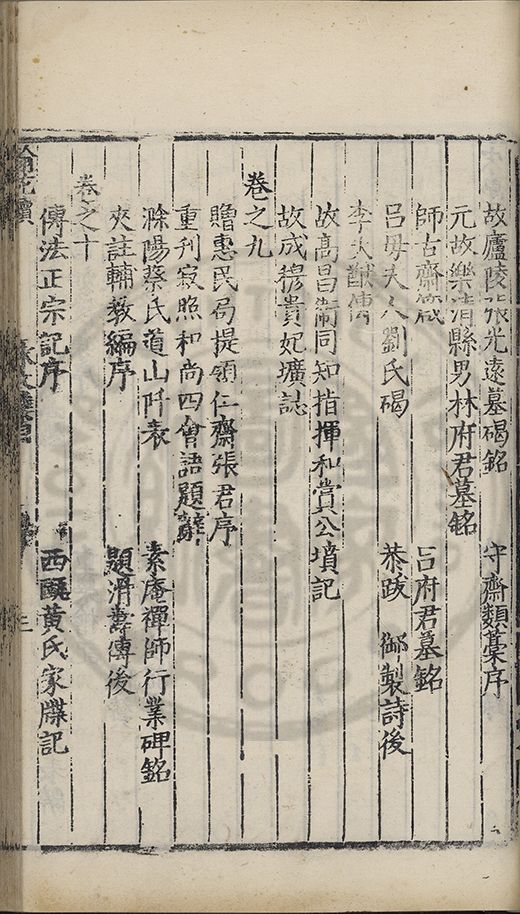 故廬陵張光遠墓碣銘　守齋類藁序
元故樂清縣男林府君墓銘
師古齋箴　呂府君墓銘
呂母夫人劉氏碣　恭跋　御製詩後
李大猷傳
故高昌衛同知指揮和賞公墳記
故成穆貴妃壙誌
卷之九
贈惠民局提領仁齋張君序
重刊寂照和尚四會語題辭
滁陽蔡氏道山阡表　素庵禪師行業碑銘
夾註輔教編序　題滑壽傳後
卷之十
傳法正宗記序　西甌黃氏家牒記